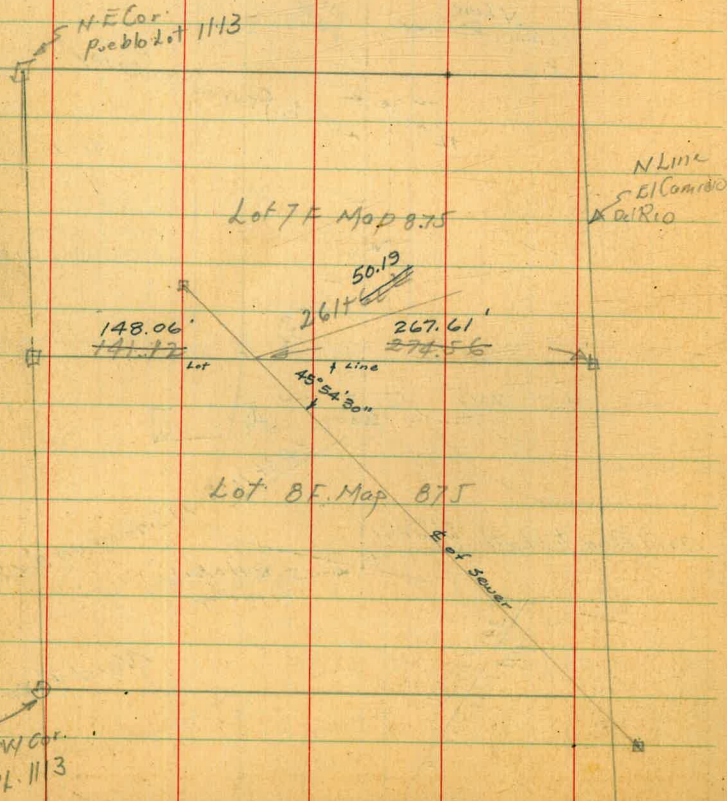 N-E Cor.
Pueblo Lot 1113
N Line
El Camino
Del Rio
Lot 7 F Map 875
50.19
261+
148.06'
141.12
267.61'
274.56
Lot Line
45°54'30"
Lot 8 F. Map 875
℄ of Sewer
W Cor.
L. 1113